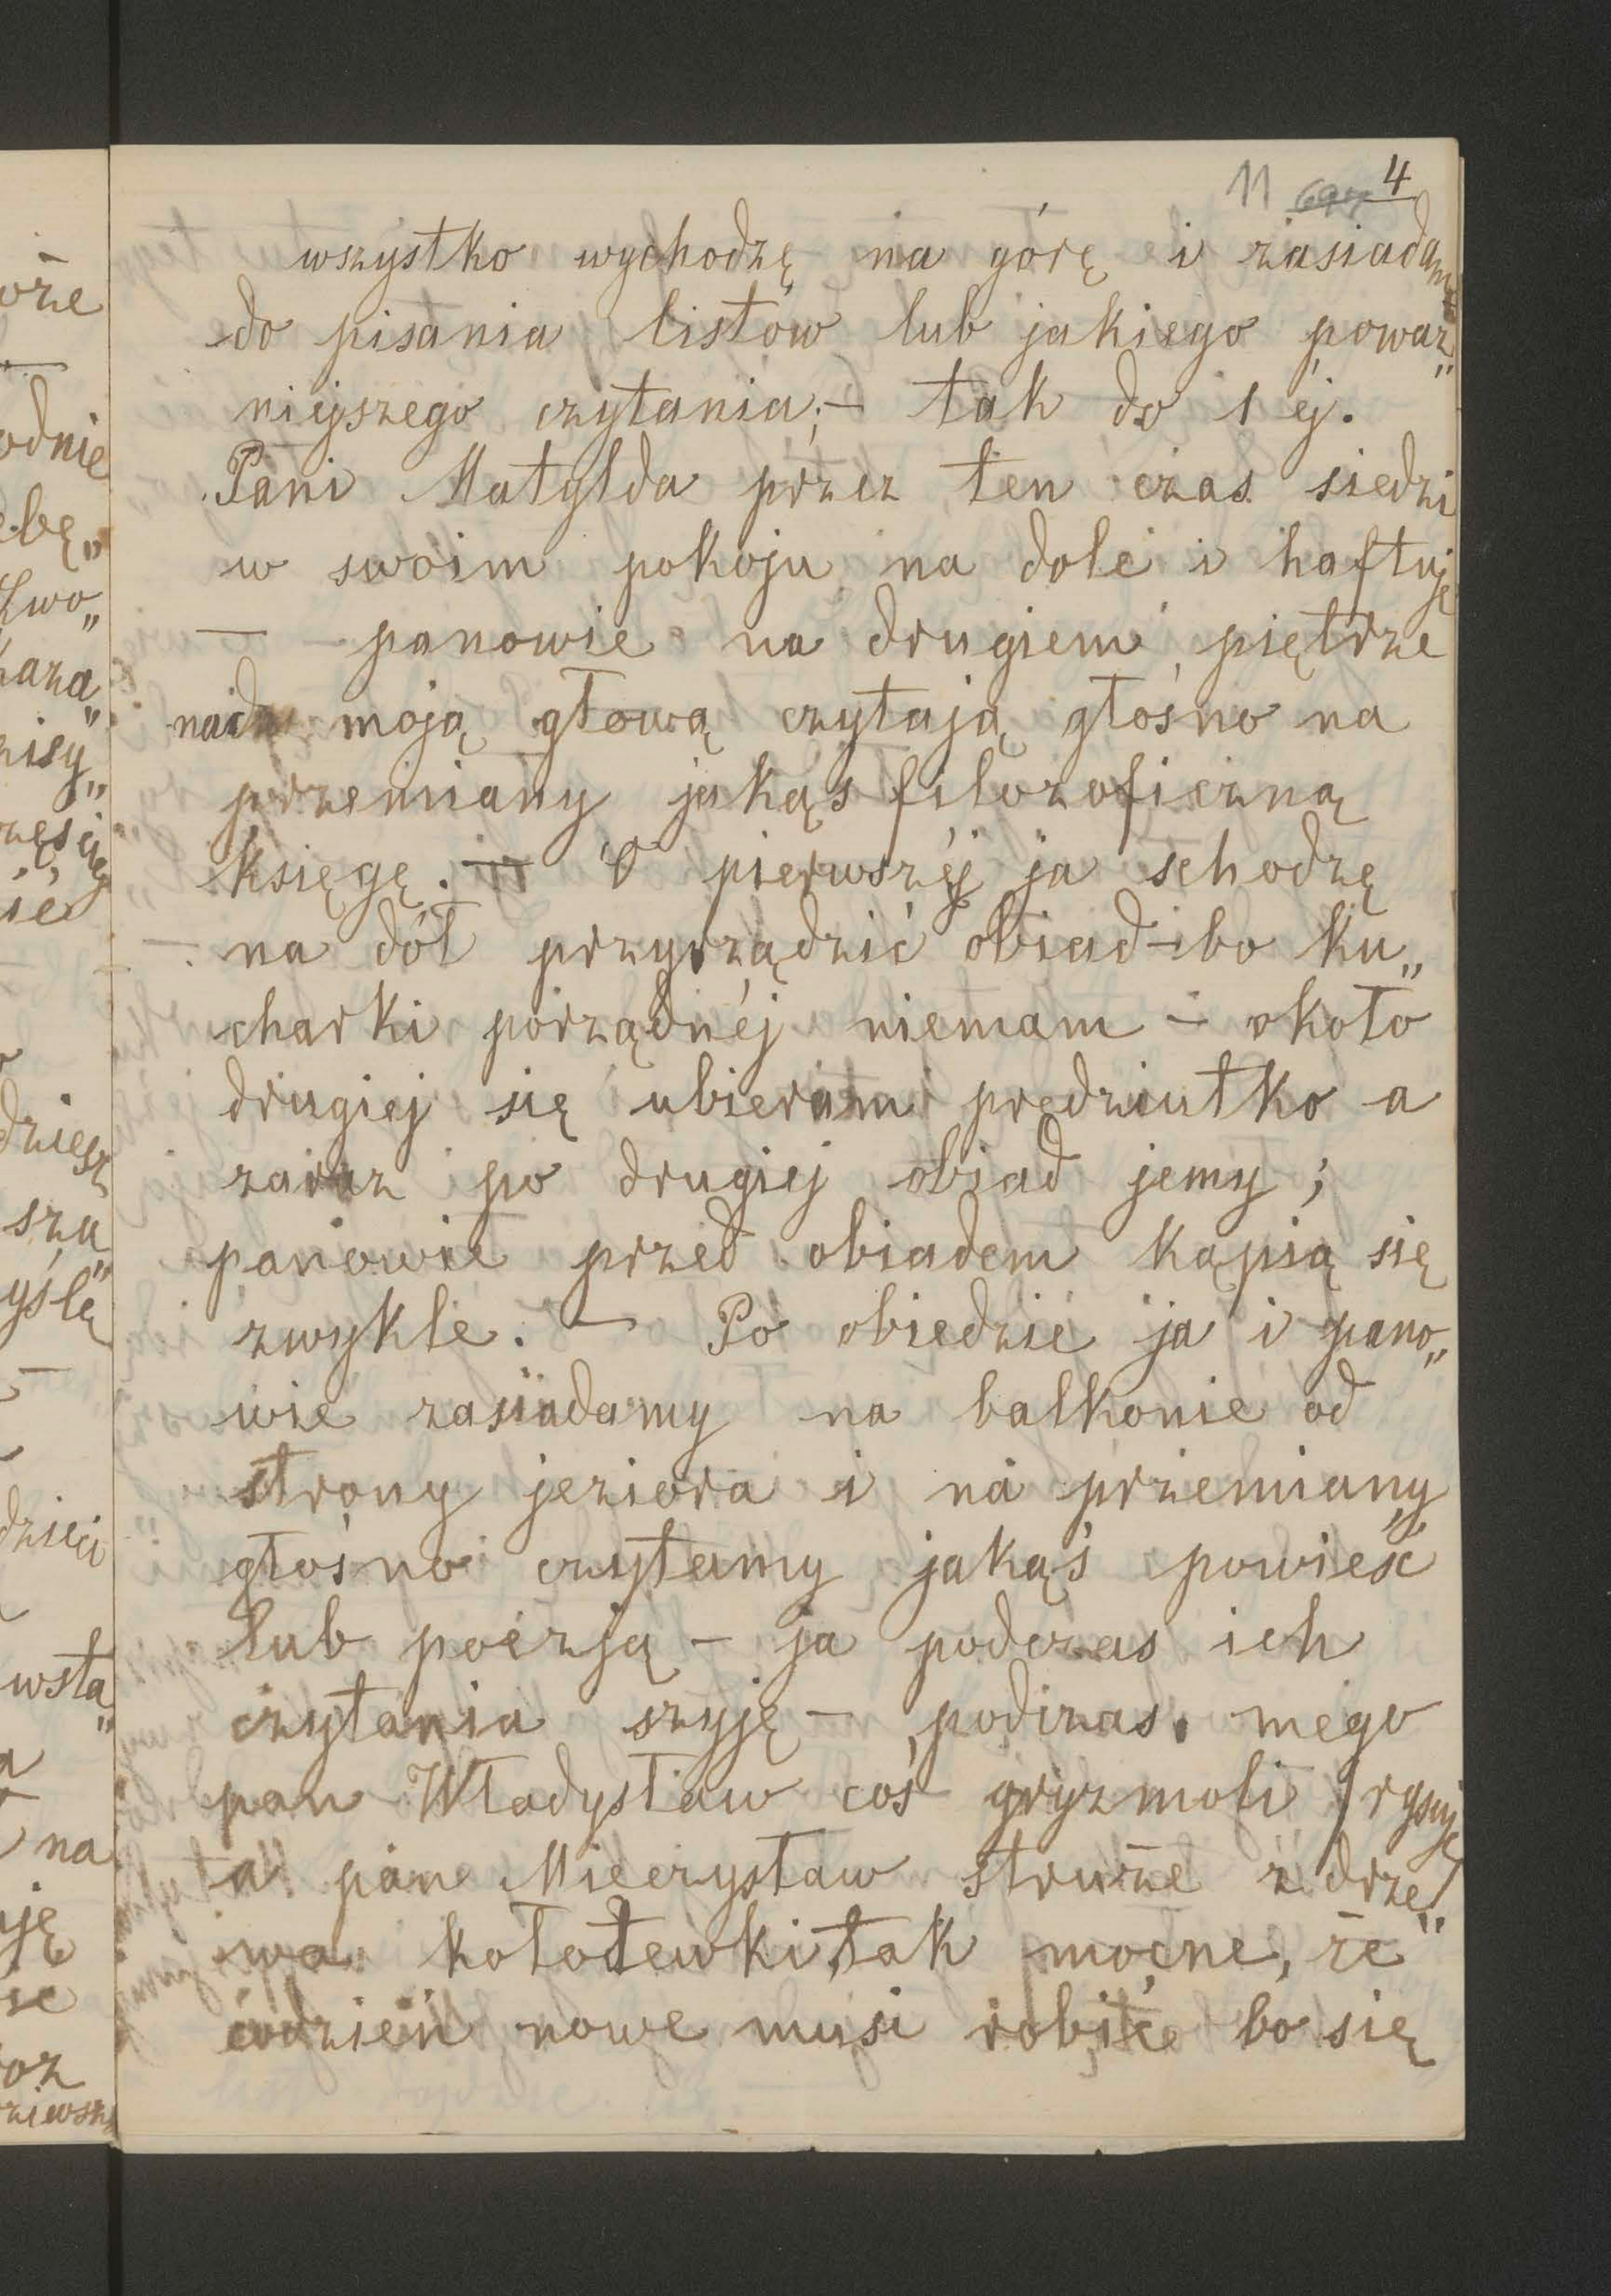 11 4
wszystko wychodzę na górę i zasiadam
do pisania listów lub jakiego poważ„
niejszego czytania; — tak do 1 éj.
Pani Matylda przez ten czas siedzi
w swoim pokoju na dole i haftuje
— panowie na drugiem piętrze
nad moją głową czytają głośno na
przemiany jakąś filozoficzną
księgę. — O pierwszéj ja schodzę
na dół przyrządzić obiad — bo ku„
charki porządnéj niemam — około
drugiej się ubieram prędziutko a
zaraz po drugiej obiad jemy;
panowie przed obiadem kąpią się
zwykle. — Po obiedzie ja i pano„
wie zasiadamy na balkonie od
strony jeziora i na przemiany
głośno czytamy jakąś powieść
lub poézją — ja podczas ich
czytania szyję — podczas mego
pan Władysław coś gryzmoli (rysuje)
a pan Mieczysław struże z drze„
wa kołotewki, tak mocne, że
codzień nowe musi robić bo się
oże
odnie
bę„
Lwo„
kaza„
nisy„
ié
dziesz
szu„
yślę
dzieci
wsta„
na
uję
oz